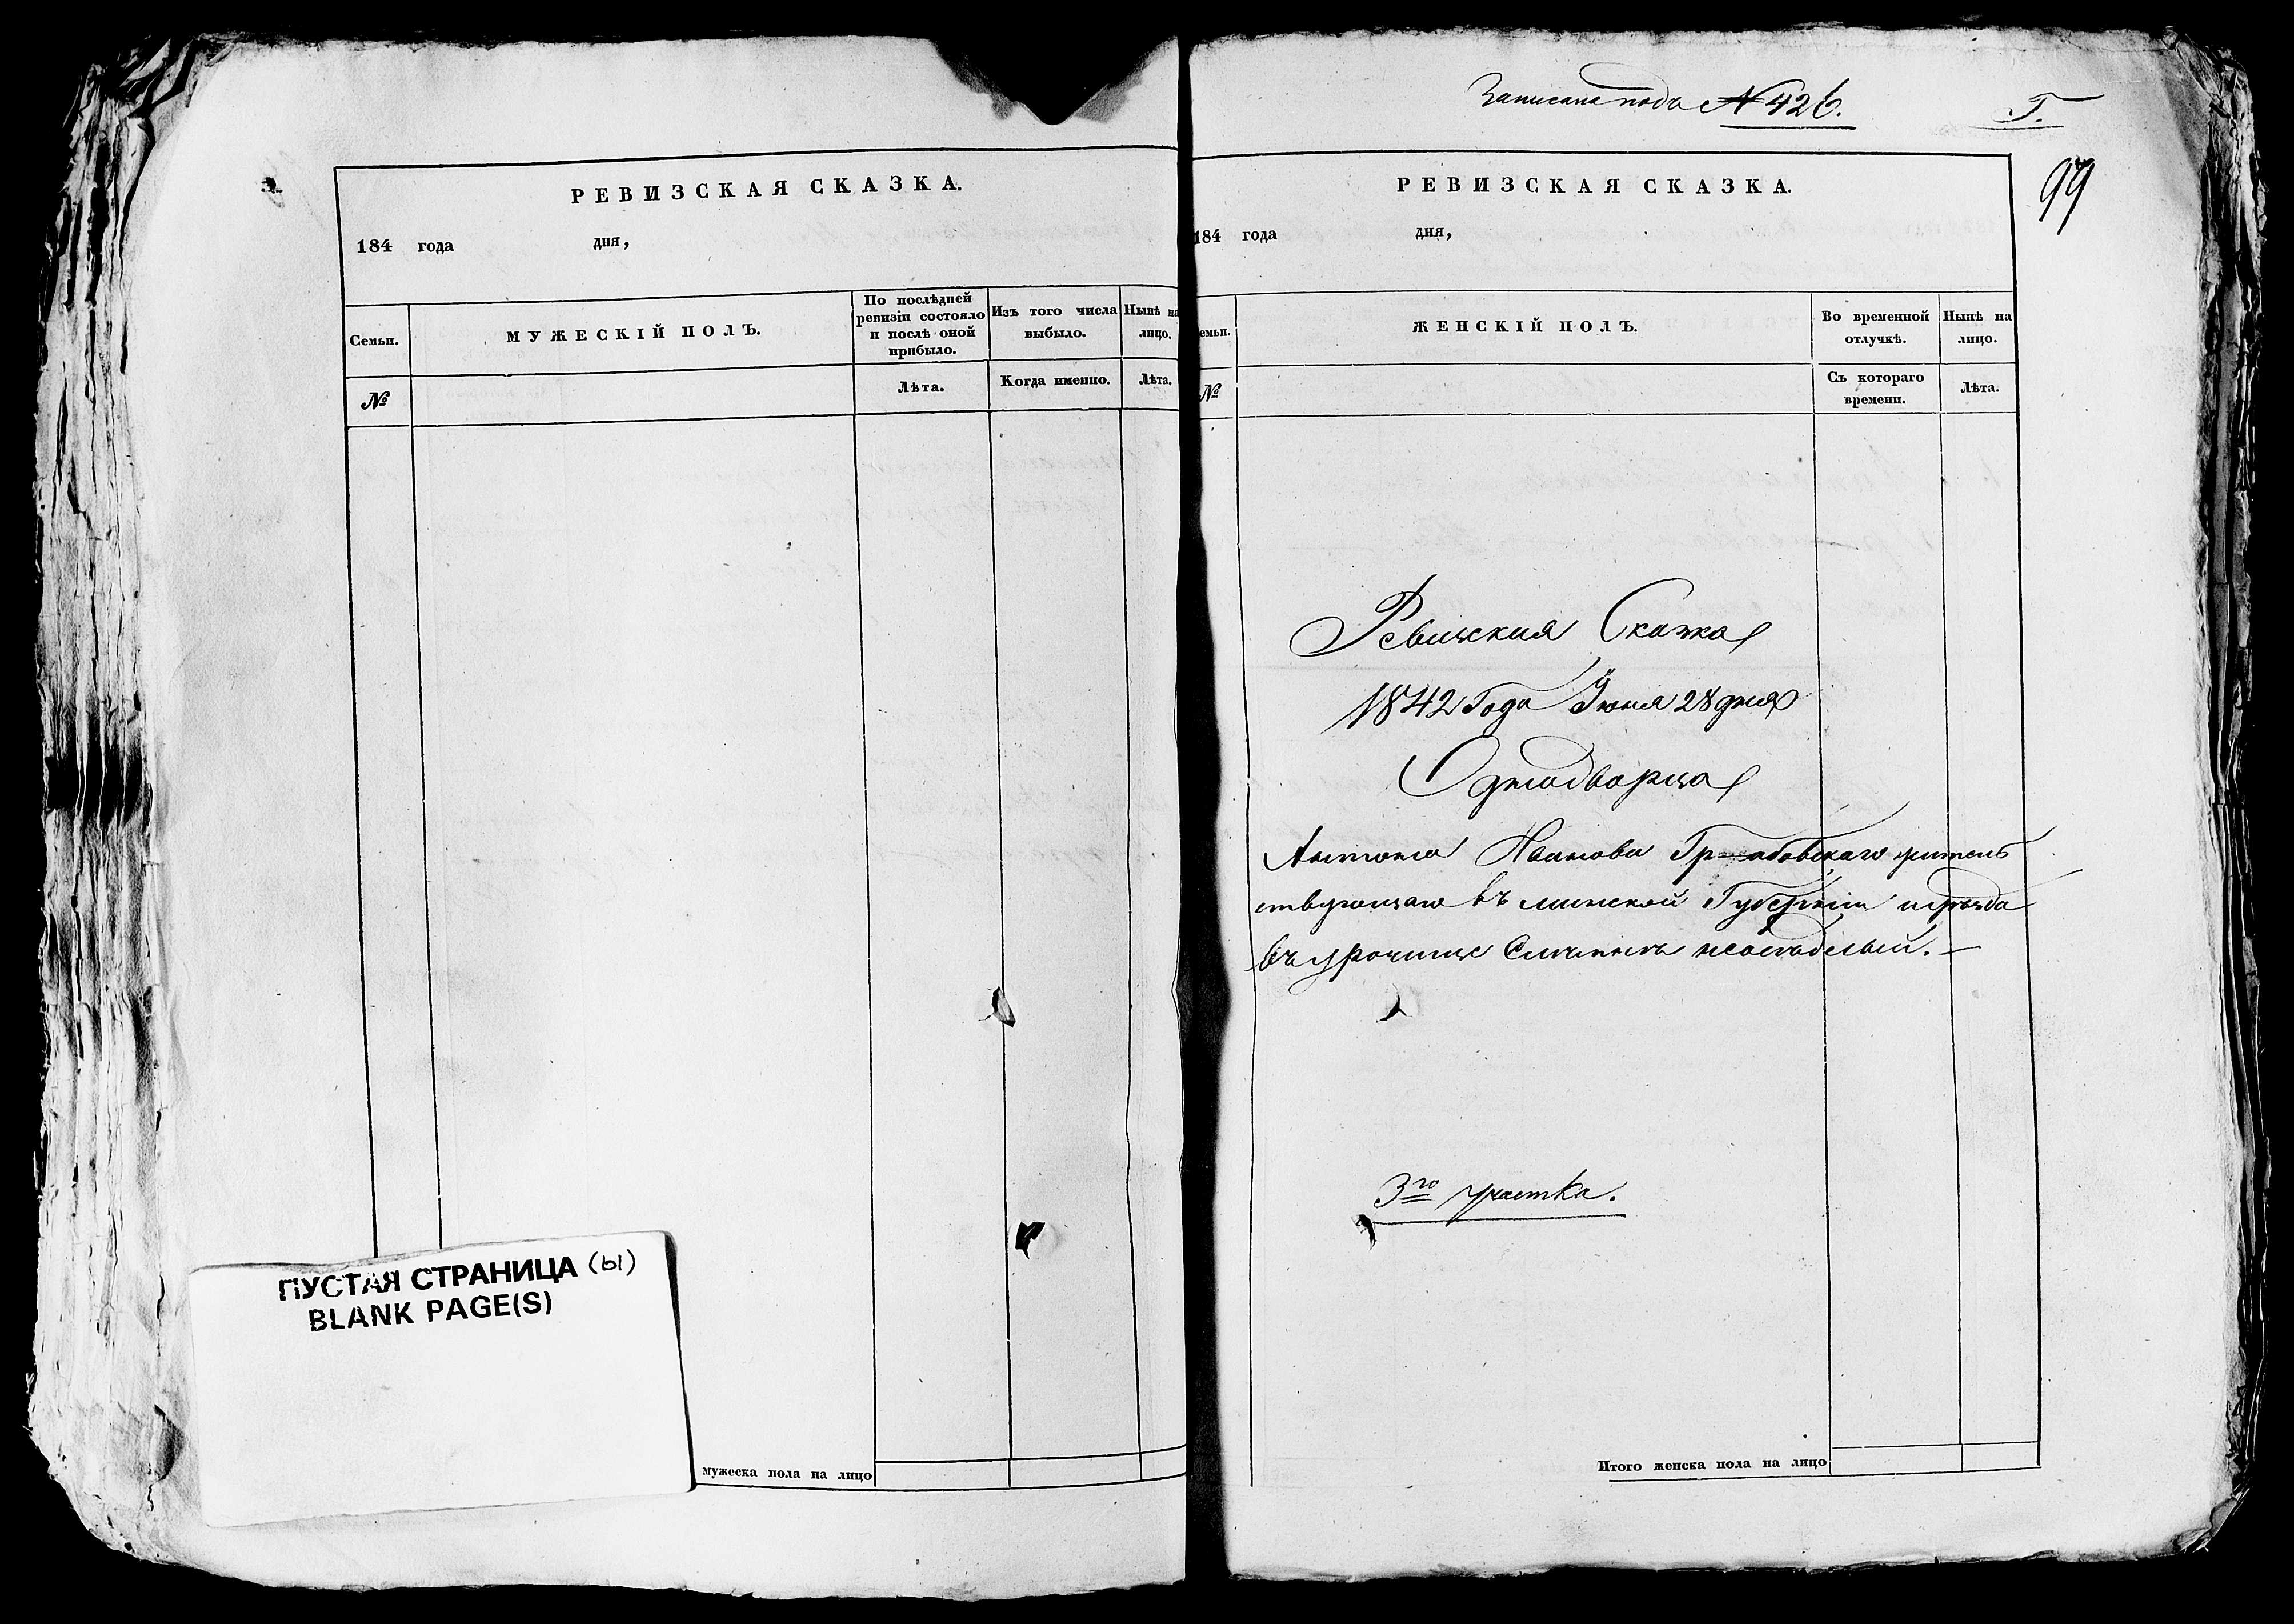 РЕВИЗСКАЯ СКАЗКА.
184 года дня,
Семьи.
МУЖЕСКІЙ ПОЛЪ.
По послѣдней
ревизіи состояло
и послѣ оной
прибыло.
Изъ того числа
выбыло.
Нынѣ на
лицо.
№
Лѣта.
Когда именно.
Лѣта.
ПУСТАЯ СТРАНИЦА (ы)
BLANK PAGE(S)
мужеска пола на лицо
Записана подъ № 426.
Г.
99
РЕВИЗСКАЯ СКАЗКА.
184 года дня,
емьи.
ЖЕНСКІЙ ПОЛЪ.
Во временной
отлучкѣ.
Нынѣ на
лицо.
№
Съ котораго
времени.
Лѣта.
Ревижкия Скажка
1842 Года Іюня 28 дня
Однодворца
Антона Иванова Грабовскаго жатель
ствующаго въ минской Губерніи
въ урочище
3го участка.
Итого женска пола на лицо